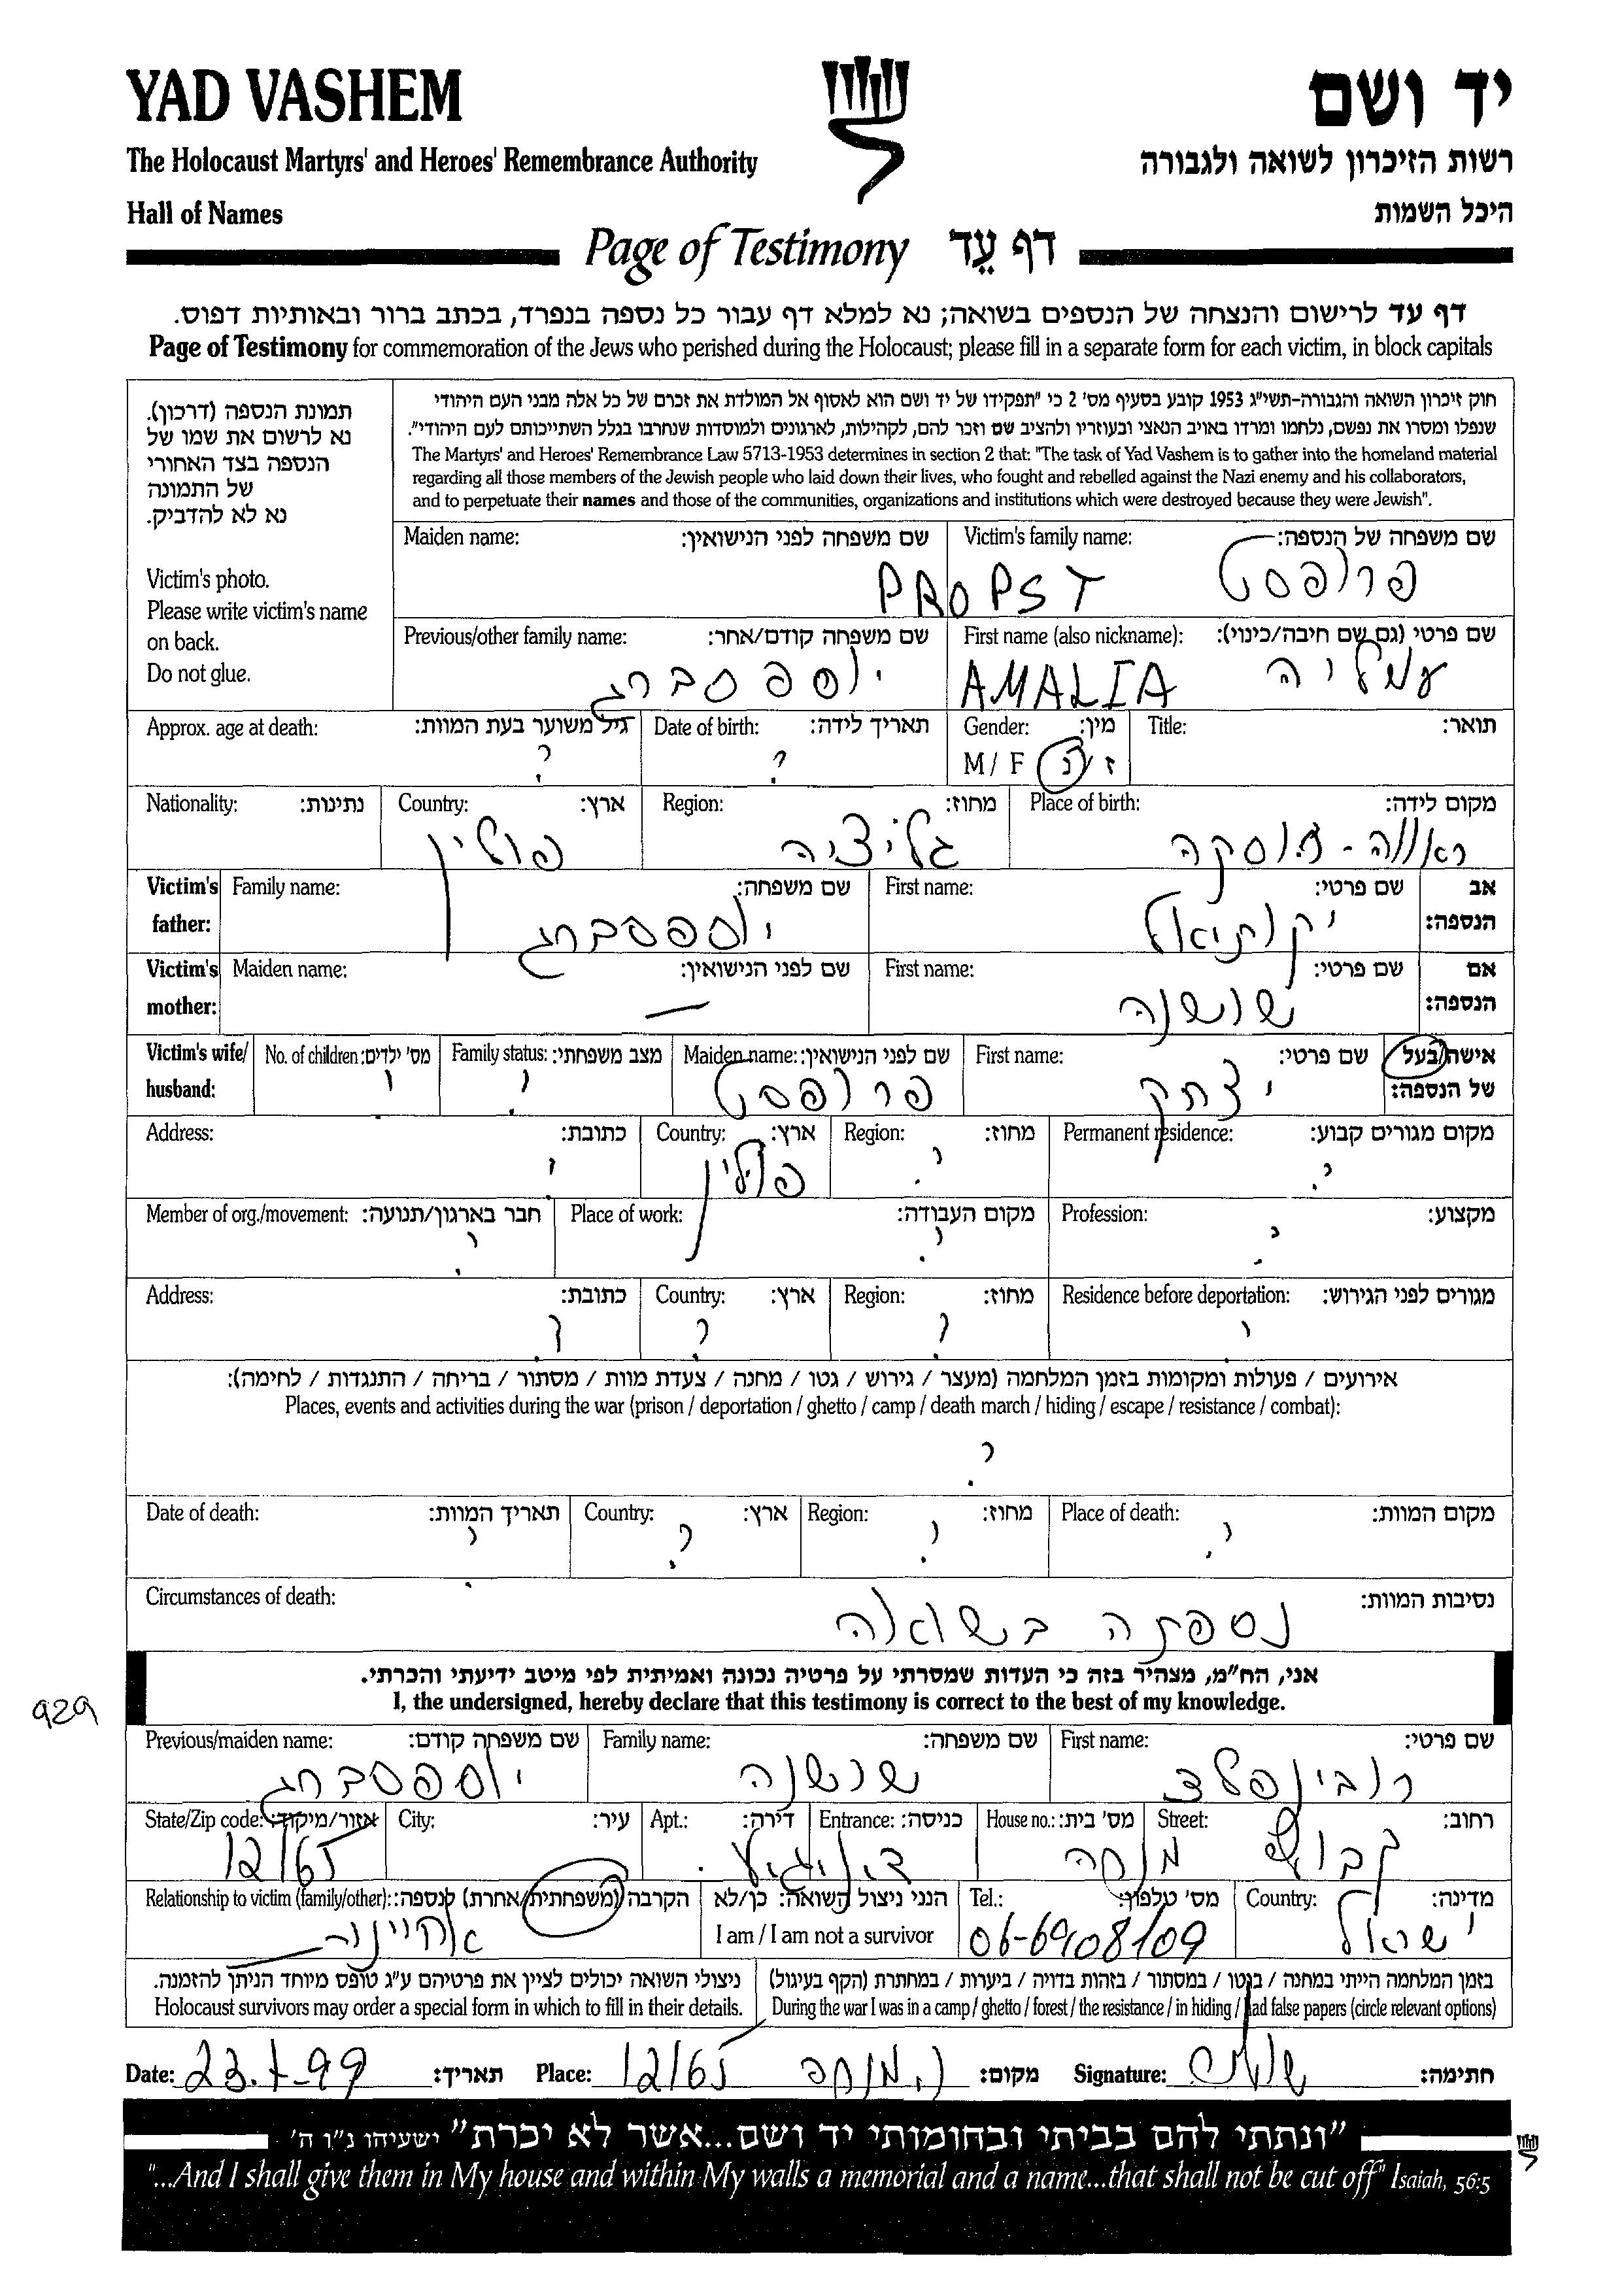 YAD VASHEM
יד ושם
The Holocaust Martyrs' and Heroes' Remembrance Authority
רשות הזיכרון לשואה ולגבורה
Hall of Names
היכל השמות
Page of Testimony דף עֵד
דף עד לרישום והנצחה של הנספים בשואה; נא למלא דף עבור כל נספה בנפרד, בכתב ברור ובאותיות דפוס.
Page of Testimony for commemoration of the Jews who perished during the Holocaust; please fill in a separate form for each victim, in block capitals
תמונת הנספה (דרכון).
נא לרשום את שמו של
הנספה בצד האחורי
של התמונה
נא לא להדביק.
Victim's photo.
Please write victim's name
on back.
Do not glue.
חוק זיכרון השואה והגבורה-תשי"ג 1953 קובע בסעיף מס' 2 כי "תפקידו של יד ושם הוא לאסוף אל המולדת את זכרם של כל אלה מבני העם היהודי
שנפלו ומסרו את נפשם, נלחמו ומרדו באויב הנאצי ובעוזריו ולהציב שם וזכר להם, לקהילות, לארגונים ולמוסדות שנחרבו בגלל השתייכותם לעם היהודי".
The Martyrs' and Heroes' Remembrance Law 5713-1953 determines in section 2 that: "The task of Yad Vashem is to gather into the homeland material
regarding all those members of the Jewish people who laid down their lives, who fought and rebelled against the Nazi enemy and his collaborators,
and to perpetuate their names and those of the communities, organizations and institutions which were destroyed because they were Jewish".
Maiden name: שם משפחה לפני הנישואין: Victim's family name: שם משפחה של הנספה:
PROPST פרופסט
Previous/other family name: שם משפחה קודם/אחר: First name (also nickname): שם פרטי (גם שם חיבה/כינוי):
יוספסברג AMALIA עמליה
Approx. age at death: גיל משוער בעת המוות: Date of birth: תאריך לידה: Gender: מין: Title: תואר:
? ? M / F ז / נ
Nationality: נתינות: Country: ארץ: Region: מחוז: Place of birth: מקום לידה:
פולין גליציה ראווה-רוסקה
Victim's father: Family name: שם משפחה: First name: שם פרטי: אב הנספה:
יוספסברג יקותיאל
Victim's mother: Maiden name: שם לפני הנישואין: First name: שם פרטי: אם הנספה:
— שושנה
Victim's wife/ husband: No. of children: מס' ילדים: Family status: מצב משפחתי: Maiden name: שם לפני הנישואין: First name: שם פרטי: אישה/בעל של הנספה:
? ? פרופסט יצחק
Address: כתובת: Country: ארץ: Region: מחוז: Permanent residence: מקום מגורים קבוע:
? פולין ? ?
Member of org./movement: חבר בארגון/תנועה: Place of work: מקום העבודה: Profession: מקצוע:
? ? ?
Address: כתובת: Country: ארץ: Region: מחוז: Residence before deportation: מגורים לפני הגירוש:
? ? ? ?
אירועים / פעולות ומקומות בזמן המלחמה (מעצר / גירוש / גטו / מחנה / צעדת מוות / מסתור / בריחה / התנגדות / לחימה):
Places, events and activities during the war (prison / deportation / ghetto / camp / death march / hiding / escape / resistance / combat):
?
Date of death: תאריך המוות: Country: ארץ: Region: מחוז: Place of death: מקום המוות:
? ? ? ?
Circumstances of death: נסיבות המוות:
נספתה בשואה
אני, הח"מ, מצהיר בזה כי העדות שמסרתי על פרטיה נכונה ואמיתית לפי מיטב ידיעתי והכרתי.
I, the undersigned, hereby declare that this testimony is correct to the best of my knowledge.
929
Previous/maiden name: שם משפחה קודם: Family name: שם משפחה: First name: שם פרטי:
יוספסברג שושנה רובינפלד
State/Zip code: אזור/מיקוד: City: עיר: Apt.: דירה: Entrance: כניסה: House no.: מס' בית: Street: רחוב:
12165 מנחה קבוץ
Relationship to victim (family/other): הקרבה (משפחתית/אחרת) לנספה: הנני ניצול השואה: כן/לא Tel.: מס' טלפון: Country: מדינה:
אחיינית I am / I am not a survivor 06-6908109 ישראל
ניצולי השואה יכולים לציין את פרטיהם ע"ג טופס מיוחד הניתן להזמנה. בזמן המלחמה הייתי במחנה / בגטו / במסתור / בזהות בדויה / ביערות / במחתרת (הקף בעיגול)
Holocaust survivors may order a special form in which to fill in their details. During the war I was in a camp / ghetto / forest / the resistance / in hiding / had false papers (circle relevant options)
Date: 23.1-99 תאריך: Place: 12165 ק. מנחה מקום: Signature: חתימה:
"ונתתי להם בביתי ובחומותי יד ושם...אשר לא יכרת" ישעיהו נ"ו ה'
"...And I shall give them in My house and within My walls a memorial and a name...that shall not be cut off" Isaiah, 56:5